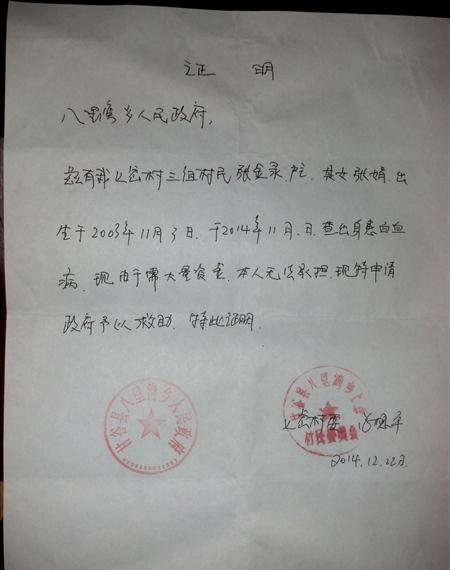 证 明
八里湾乡人民政府，
兹有我上岔村三组村民张金录，户主，其女张娟，出
生于2003年11月3日，于2014年11月 日，查出身患白血
病，现由于需大量资金，本人无法承担，现特申请
政府予以救助，特此证明。
甘谷县八里湾乡人民政府
甘谷县八里湾乡上岔
村民委员会
上岔村委
2014.12.22日